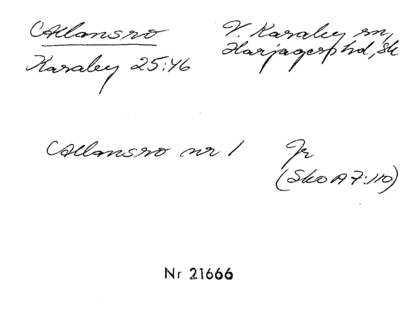 Allansro V. Karaby sn,
Karaby 25:46 Harjagers hd, Sk
Allansro nr 1 Jr
(SkoA 7:110)
Nr 21666